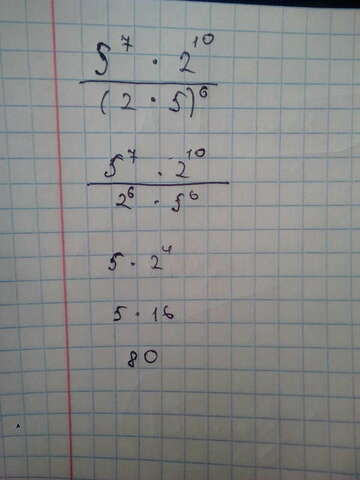 5⁷ · 2¹⁰
(2 · 5)⁶
5⁷ · 2¹⁰
2⁶ · 5⁶
5 · 2⁴
5 · 16
80